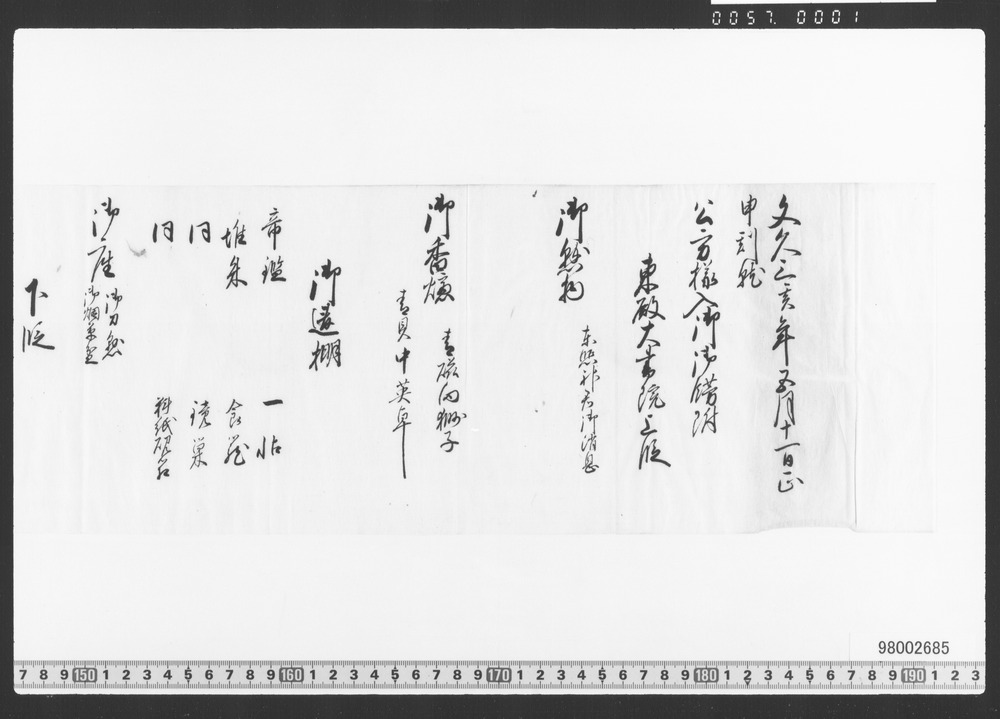 0057.0001
文久三亥年五月十一日正
申刻
公方様入御御餝附
東殿大書院上段
御懸物
東照神君御消息
御香爐
青磁向獅子
青貝中英卓
御違棚
帝鑑 一帖
堆朱 食籠
同 
同 料紙硯石
御座
御刀懸
御烟草盆
下段
98002685
7 8 9 150 1 2 3 4 5 6 7 8 9 160 1 2 3 4 5 6 7 8 9 170 1 2 3 4 5 6 7 8 9 180 1 2 3 4 5 6 7 8 9 190 1 2 3